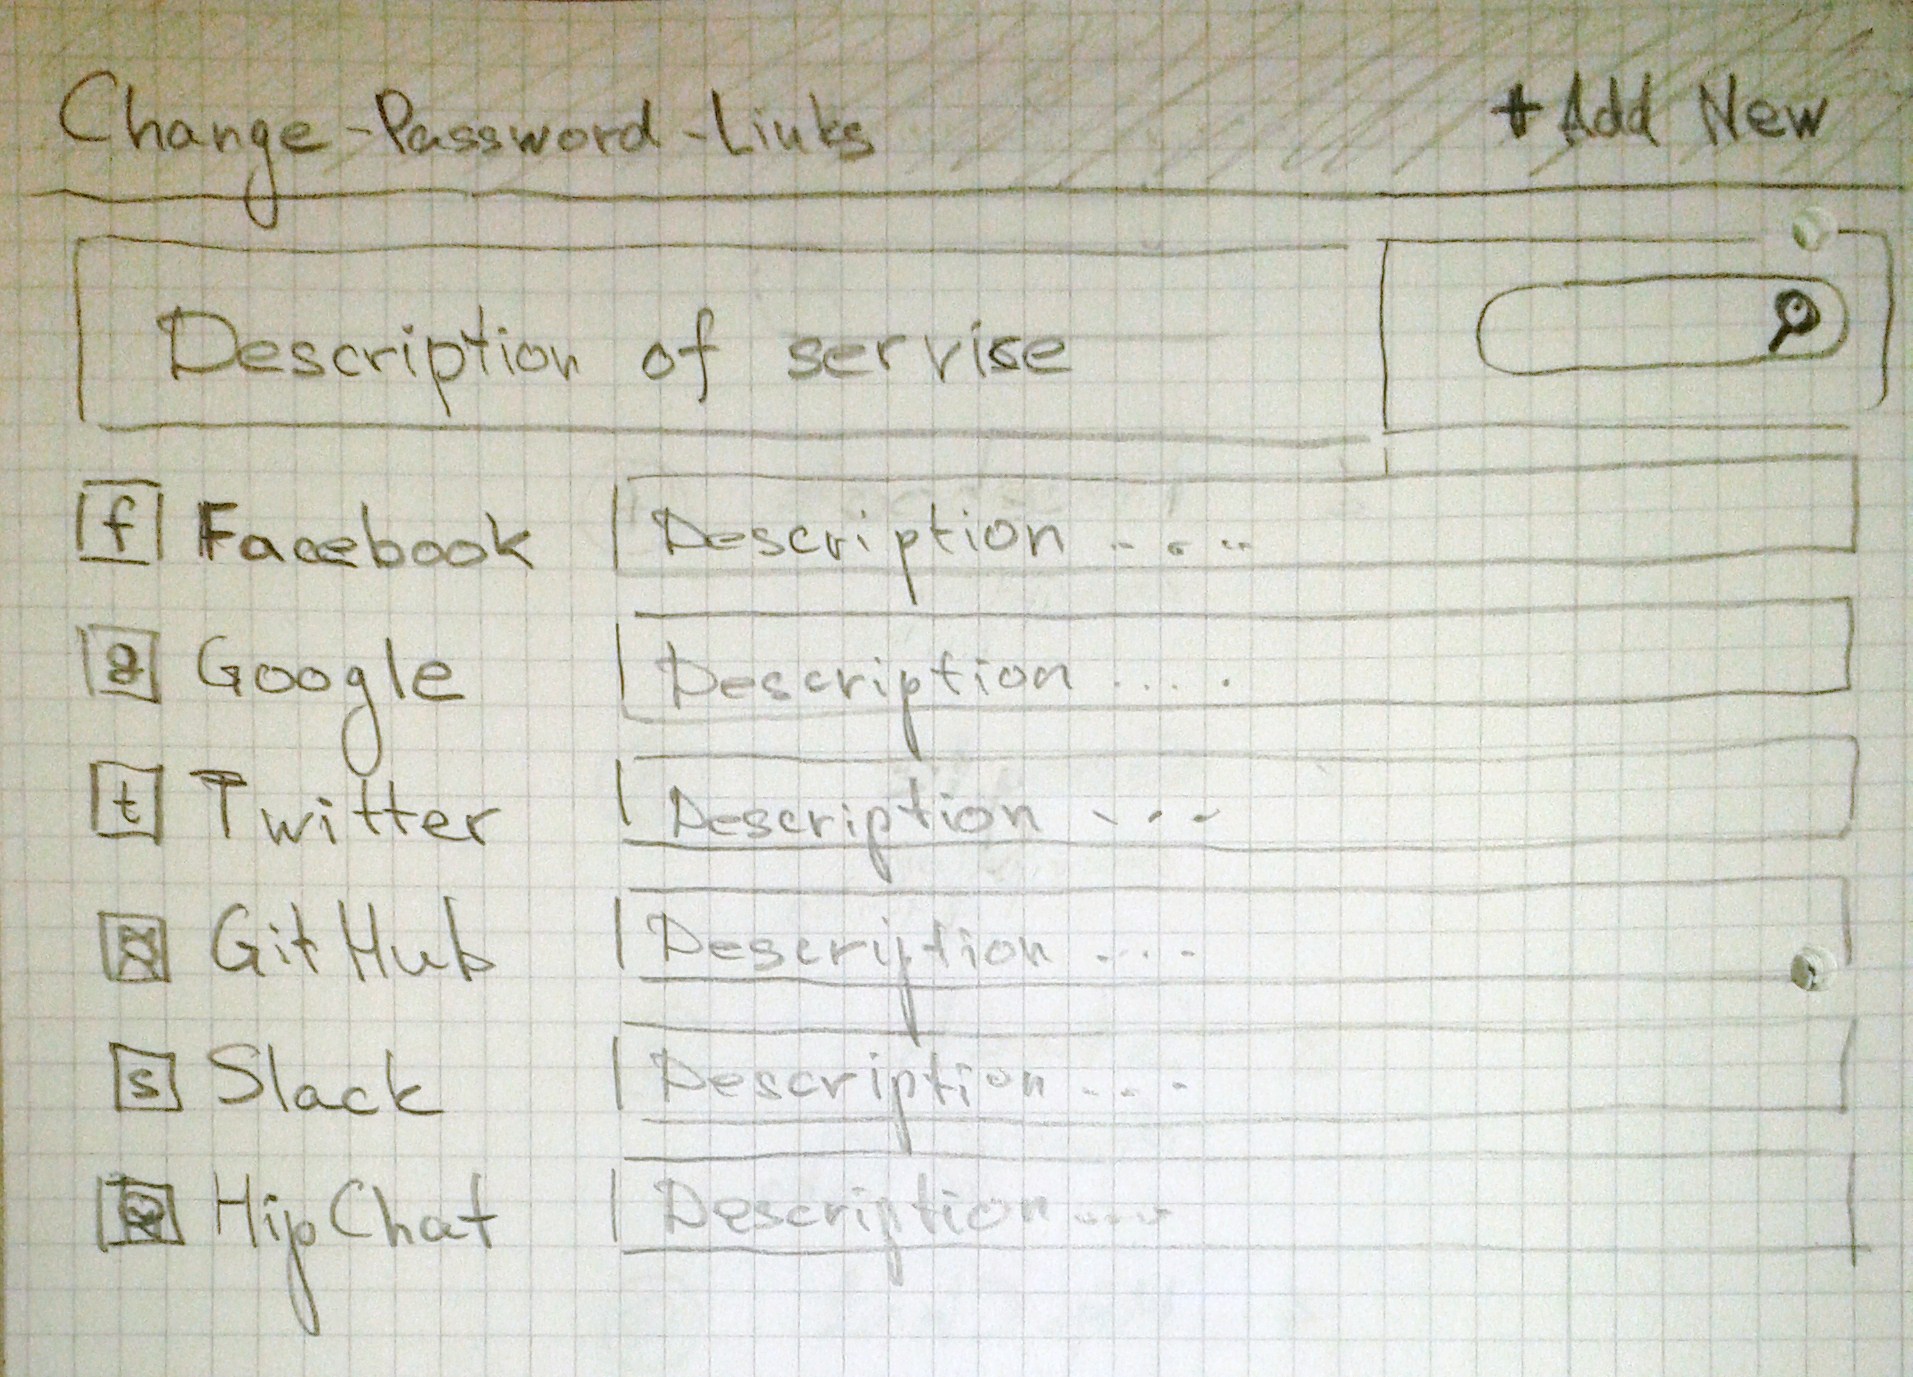 Change-Password-Links + Add New
Description of servise
f Facebook Description ....
g Google Description ....
t Twitter Description ...
GitHub Description ....
s Slack Description ...
HipChat Description ....